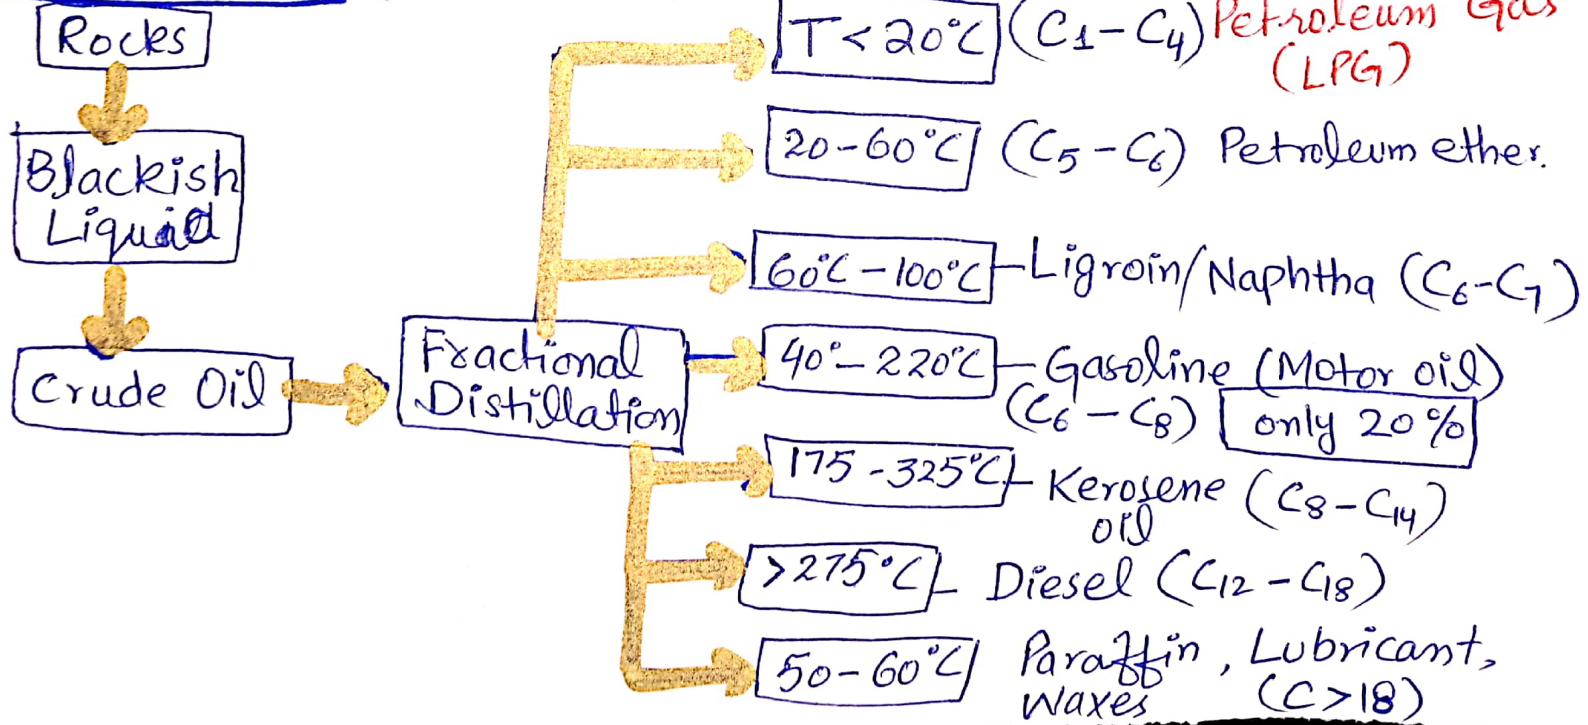 Rocks
Blackish
Liquid
Crude Oil
Fractional
Distillation
T < 20°C (C1-C4) Petroleum Gas
(LPG)
20-60°C (C5-C6) Petroleum ether.
60°C-100°C Ligroin/Naphtha (C6-C7)
40°-220°C Gasoline (Motor oil)
(C6-C8) only 20%
175-325°C Kerosene (C8-C14)
oil
>275°C Diesel (C12-C18)
50-60°C Paraffin, Lubricant,
Waxes (C>18)